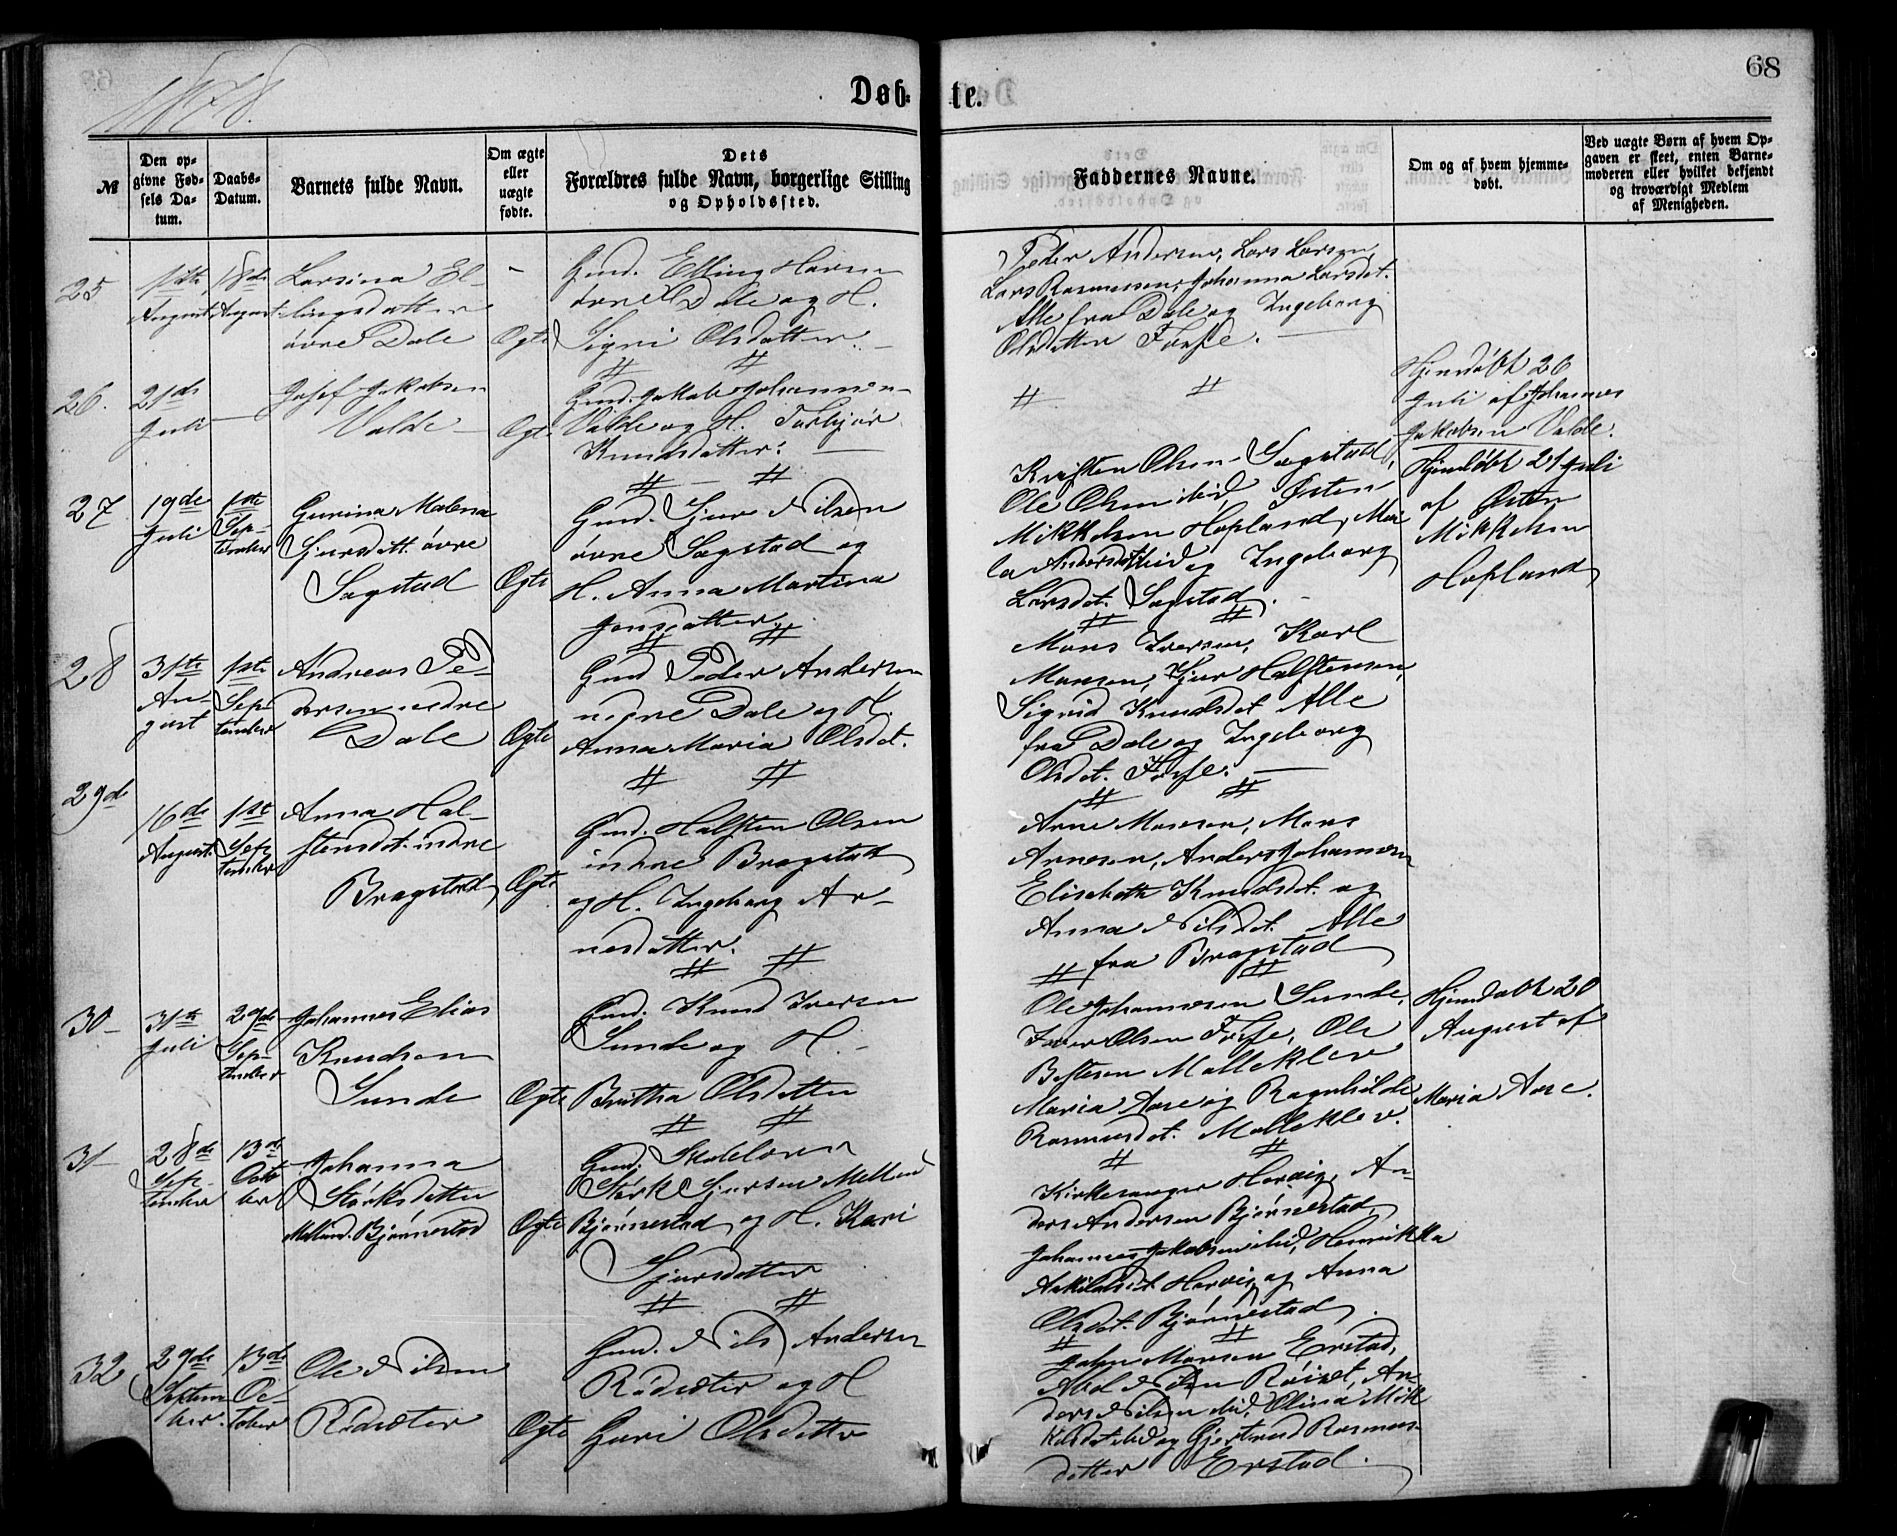 1878.
Døb-
te.
68
№
Den op-
givne Fød-
sels Da-
tum.
Daabs-
Datum.
Barnets fulde Navn.
Om ægte
eller
uægte
fødte.
Dets
Forældres fulde Navn, borgerlige Stilling
og Opholdssted.
Faddernes Navne.
Om og af hvem hjemme-
døbt.
Ved uægte Børn af hvem Op-
gaven er skeet, enten Barne-
moderen eller hvilket bekjendt
og troværdigt Medlem
af Menigheden.
25
11te
August
18de
August
Larsina El-
lingsdatter
øvre Dale
Ægte
Gmd. Elling
øvre Dale og H.
Sigri Olsdatter.
Peder Andersen, Lars Larsen,
Lars Rasmussen, Johanna Larsdet.
Alle fra Dale og Ingeborg
Olsdatter
26.
21de
Juli
Josef Jakobsen
Valde
Ægte
Gmd. Jakob Johannesen
Valde og H. Torbjør
Knudsdatter.
Hjemdøbt 26
Juli af Johannes
Jakobsen Valde.
27
19de
Juli
1ste
Sep-
tember
Gurina Malena
Sjursdatt. øvre
Sagstad
Ægte
Gmd. Sjur Nilsen
øvre Sagstad og
H. Anna Martina
Jonsdatter.
Kristen Olsen Sagstad,
Ole Olsen ibid, Østen
Mikkelsen Hopland, Ma-
la Andersdatt ibid og Ingeborg
Larsdet. Sagstad.
Hjemdøbt 21 Juli
af Østen
Mikkelsen
Hopland
28
31te
August
1ste
Sep-
tember
Andreas Pe-
dersen nedre
Dale
Ægte
Gmd Peder Andersen
nedre Dale og H.
Anna Maria Olsdet.
Mons Iversen, Karl
Monsen, Sjur Halstensen,
Sigrid Knudsdet Alle
fra Dale og Ingeborg
Olsdet.
29de
16de
August.
1ste
Sep-
tember
Anna Hal-
stensdet. indre
Bragstad
Ægte
Gmd. Halsten Olsen
indre Bragstad
og H. Ingeborg Ar-
nesdatter.
Arne Monsen, Mons
Arnesen, Anders Johannesen
Elisabeth Knudsdet. og
Anna Nilsdet. Alle
fra Bragstad
30
31te
Juli
29de
Sep-
tember
Johannes Elias
Knudsen
Sunde
Ægte
Gmd. Knud Iversen
Sunde og H.
Brittha Olsdatter
Ole Johannesen Sunde,
Iver Olsen Ole
Malleklev
Maria Aase og Ragnhilde
Rasmusdet. Malleklev.
Hjemdøbt 20
August af
Maria Aase.
31
28de
Sep-
tember
13de
Octo-
ber
Johanna
Størksdatter
Mellem. Bjørnestad
Ægte
Gmd. Skolelærer
Størk Sjursen Mellem
Bjørnestad og H. Kari
Sjursdatter
Kirkesanger Hervig, An-
ders Andersen Bjørnestad,
Johannes Jakobsen ibid, Henrikka
Hervig og Anna
Olsdet. Bjørnestad
32
29de
Septem-
ber.
13de
Oc-
tober
Ole Nilsen
Rødsæter
Ægte
Gmd. Nils Andersen
Rødsæter og H
Guri Olsdatter
John Monsen Erstad,
Abel Nilsen An-
ders Nilsen ibid, Olina Mik-
kelsdet ibid og Gjertrud Rasmus-
datter Erstad.